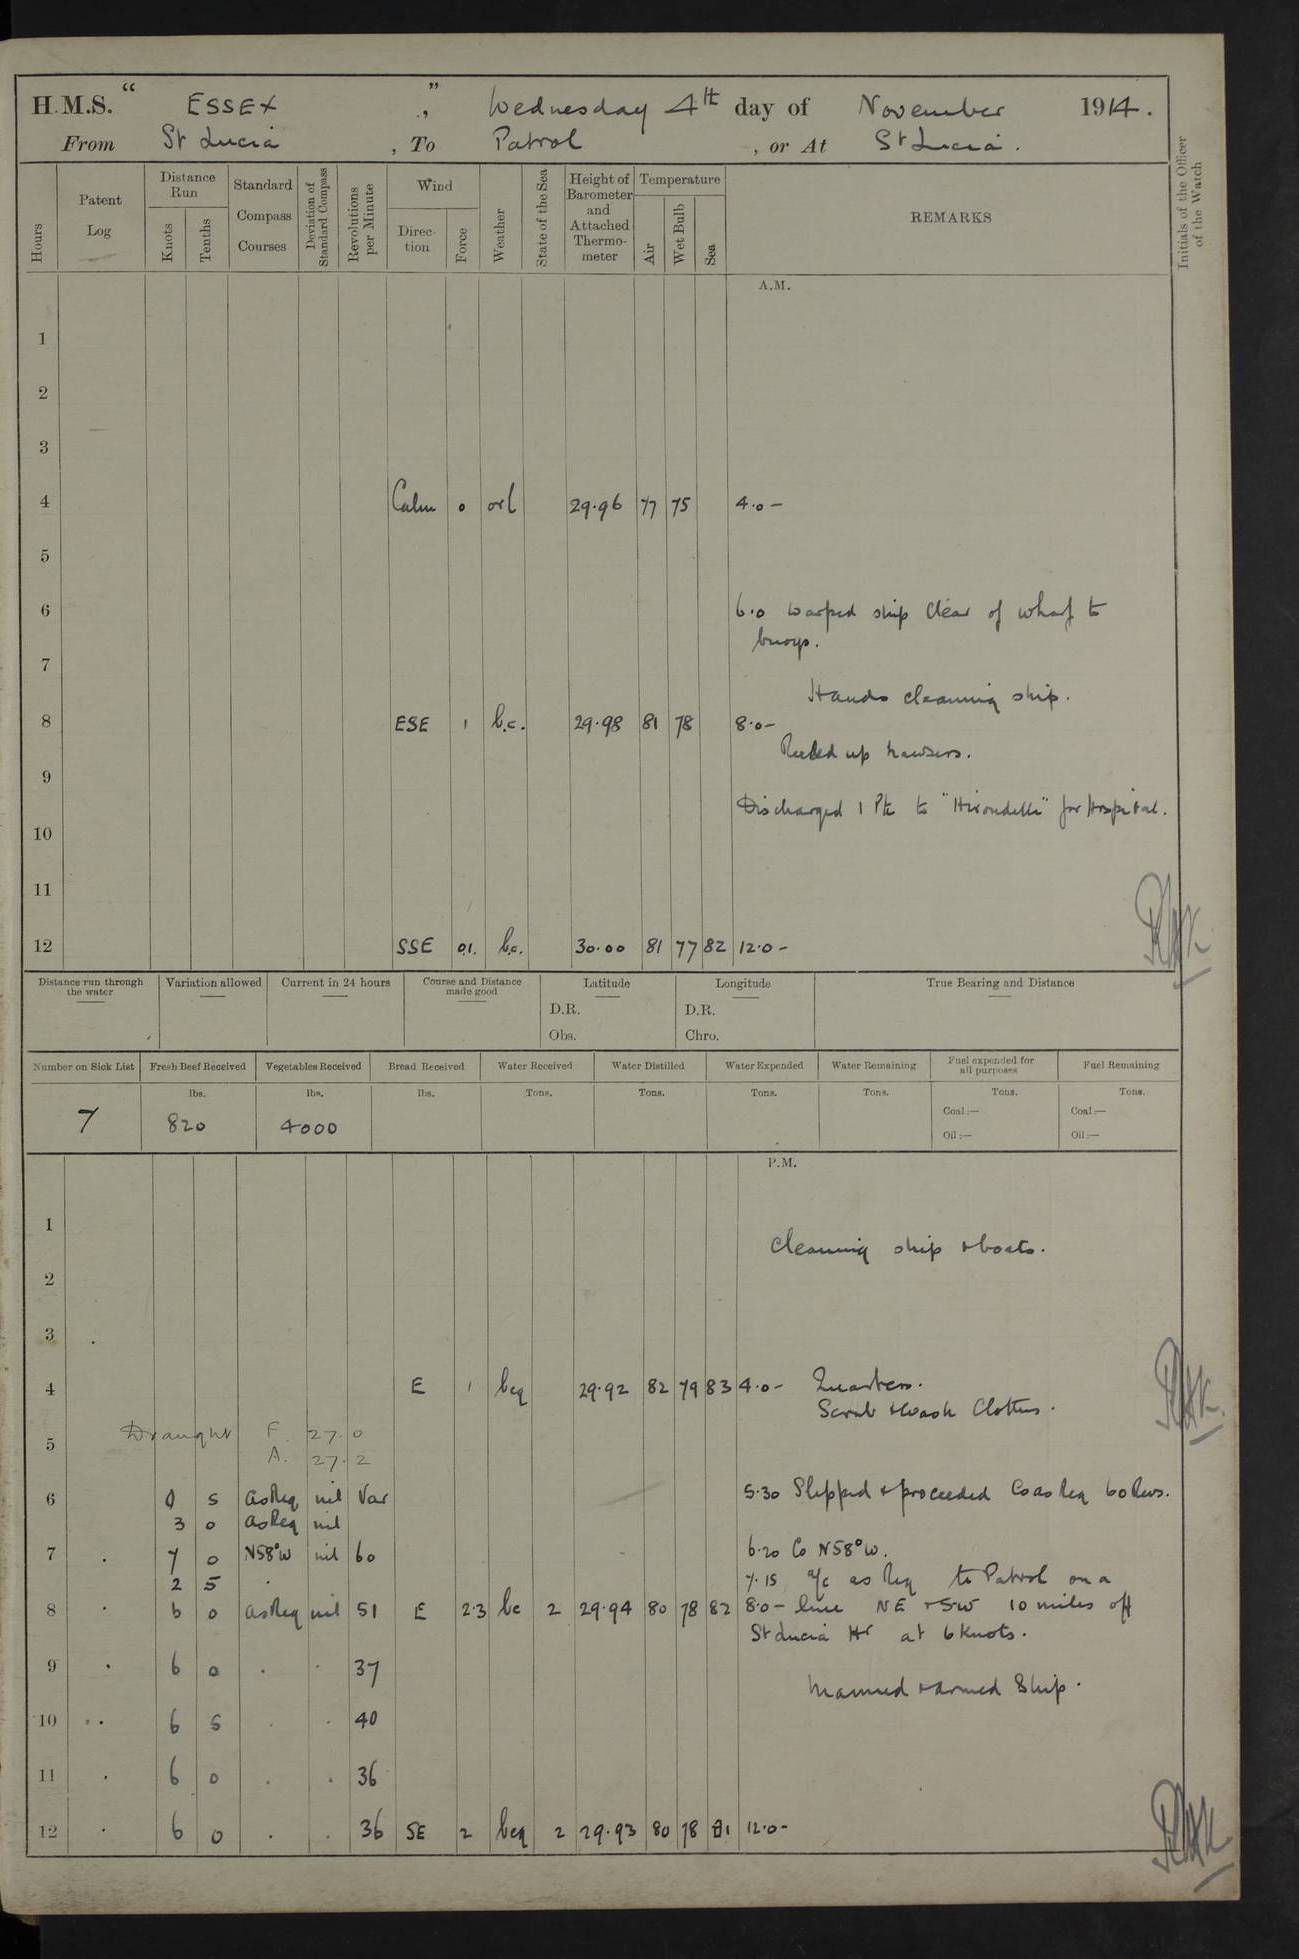 H.M.S. " ESSEX ", Wednesday 4th day of November 1914.
From St Lucia, To Patrol, or At St Lucia.
Hours
Patent Log
Distance Run
Knots
Tenths
Standard Compass Courses
Deviation of Standard Compass
Revolutions per Minute
Wind
Direction
Force
Weather
State of the Sea
Height of Barometer and Attached Thermometer
Temperature
Air
Wet Bulb
Sea
REMARKS
Initials of the Officer of the Watch
A.M.
1
2
3
4 Calm 0 orl 29.96 77 75 4.0-
5
6 6.0 Warped ship clear of wharf to
buoys.
7
Hands cleaning ship.
8 ESE 1 b.c. 29.98 81 78 8.0-
Reeled up hawsers.
9
Discharged 1 Pte to "Hirondelle" for Hospital.
10
11
12 SSE 0.1. bc. 30.00 81 77 82 12.0-
Distance run through the water
Variation allowed
Current in 24 hours
Course and Distance made good
Latitude
Longitude
True Bearing and Distance
D.R. D.R.
Obs. Chro.
Number on Sick List
Fresh Beef Received
Vegetables Received
Bread Received
Water Received
Water Distilled
Water Expended
Water Remaining
Fuel expended for all purposes
Fuel Remaining
lbs. lbs. lbs. Tons. Tons. Tons. Tons. Tons. Tons.
Coal:— Coal:—
7 820 4000
Oil:— Oil:—
P.M.
1
Cleaning ship & boats.
2
3
4 E 1 bcq 29.92 82 79 83 4.0- Quarters.
Scrub & Wash Clothes.
Draught F. 27.0
5
A. 27.2
6 0 5 as Req nil Var 5.30 Slipped & proceeded Co as Req 60 Revs.
3 0 as Req nil
7 7 0 N58°W nil 60 6.20 Co N58°W.
2 5 7.15 a/c as Req to Patrol on a
8 6 0 as Req nil 51 E 2.3 bc 2 29.94 80 78 82 8.0- line NE & SW 10 miles off
St Lucia Hr at 6 Knots.
9 6 0 37
Manned & armed Ship.
10 6 5 40
11 6 0 36
12 6 0 36 SE 2 bcq 2 29.93 80 78 81 12.0-